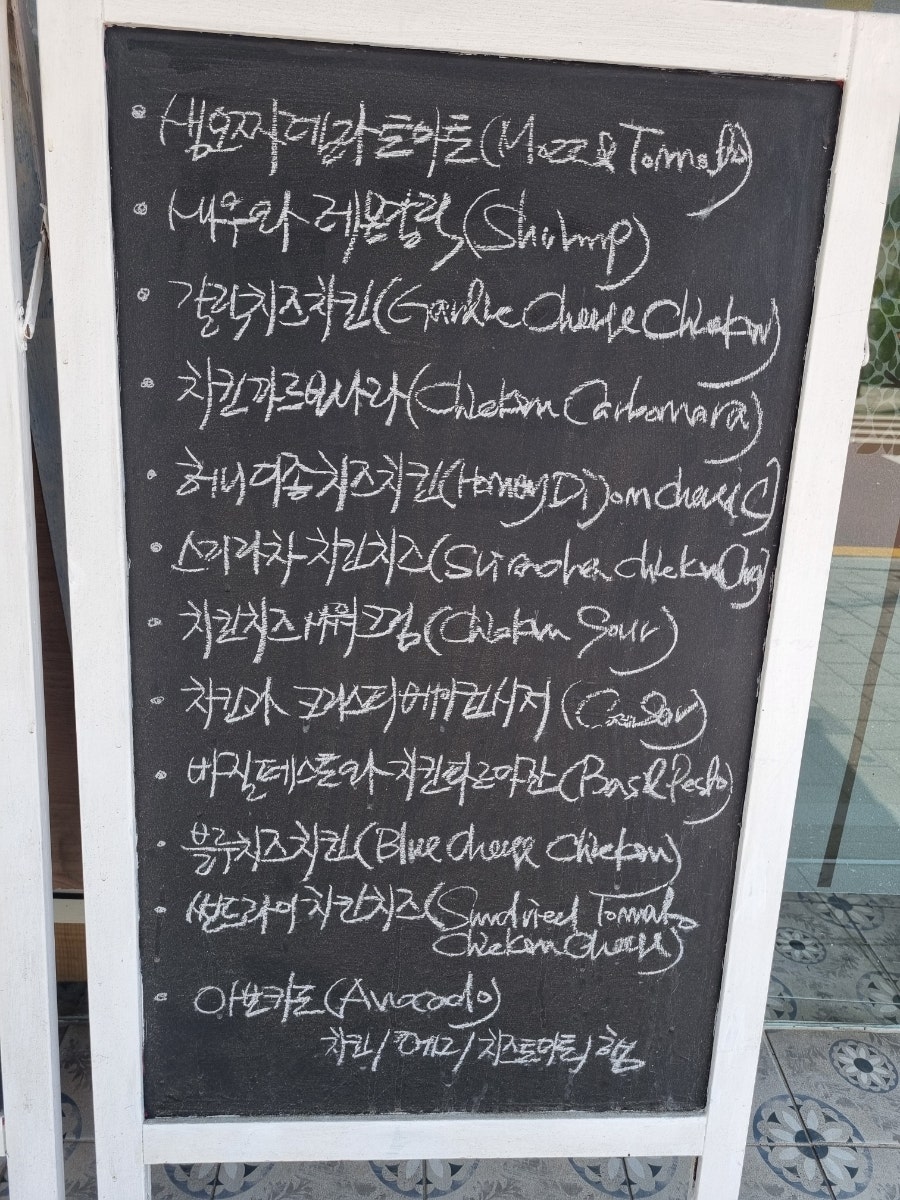 생모짜렐라 토마토(Mozz & Tomato)
새우와 레몬갈릭(Shrimp)
갈릭치즈치킨(Garlic Cheese Chicken)
치킨까르보나라(Chicken Carbonara)
허니디종치즈치킨(Honey Dijon cheese C)
스리라차 치킨치즈(Siracha chicken Che)
치킨치즈 사워크림(Chicken Sour)
치킨과 크리스피 베이컨시저
바질페스토와 치킨파르미쟌(Basil Pesto)
블루치즈치킨(Blue cheese Chicken)
썬드라이치킨치즈(Sundried Tomato
chicken Cheese)
아보카도(Avocado)
치킨/에그/치즈토마토/햄